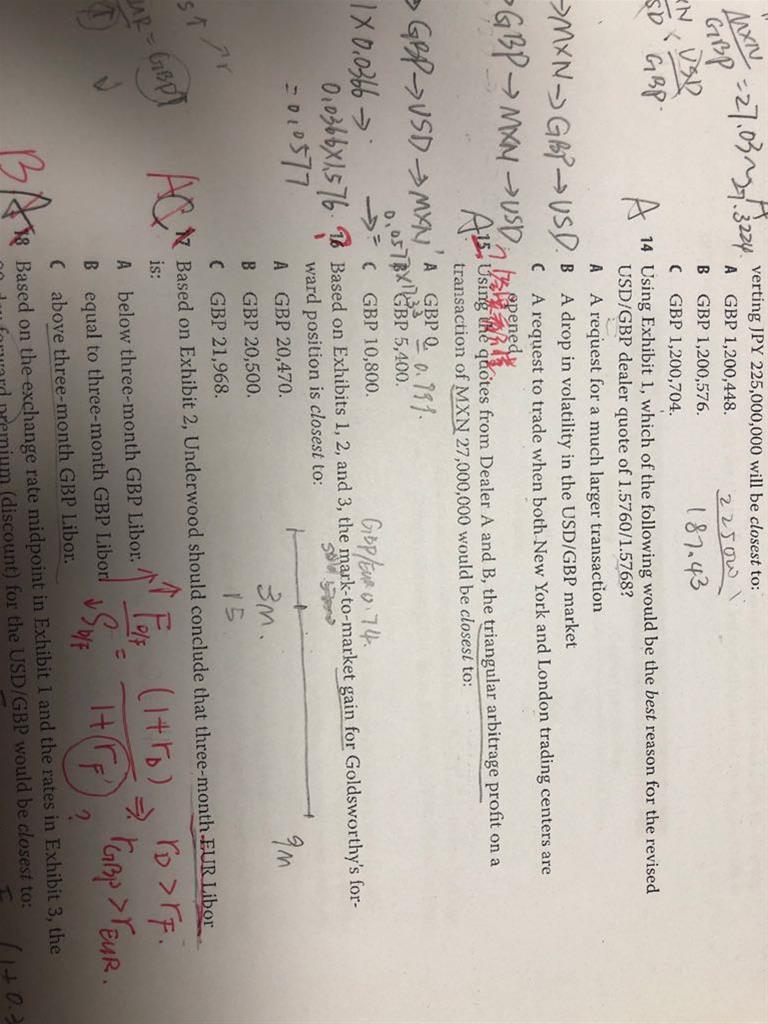 verting JPY 225,000,000 will be closest to:
A GBP 1,200,448.
B GBP 1,200,576.
C GBP 1,200,704.
22500
187.43
MXN
GBP
= 27.03~27.3224
USD
GBP
A 14 Using Exhibit 1, which of the following would be the best reason for the revised
USD/GBP dealer quote of 1.5760/1.5768?
A A request for a much larger transaction
B A drop in volatility in the USD/GBP market
C A request to trade when both New York and London trading centers are
opened
→MXN→GBP→USD
GBP→MXN→USD
A 15 Using the quotes from Dealer A and B, the triangular arbitrage profit on a
transaction of MXN 27,000,000 would be closest to:
A GBP 0
B GBP 5,400.
C GBP 10,800.
GBP→USD→MXN
1×0.0366→
0.0366×1.576
=0.0577
= 0.999
GBP/EUR 0.74
16 Based on Exhibits 1, 2, and 3, the mark-to-market gain for Goldsworthy's for-
ward position is closest to:
A GBP 20,470.
B GBP 20,500.
C GBP 21,968.
3M.
15
9M
17 Based on Exhibit 2, Underwood should conclude that three-month EUR Libor
is:
A below three-month GBP Libor.
B equal to three-month GBP Libor.
C above three-month GBP Libor.
↑F D/F
↓S D/F
=
(1+rD)
1+rF
⇒
rD>rF.
rGBP>rEUR.
?
B
18 Based on the exchange rate midpoint in Exhibit 1 and the rates in Exhibit 3, the
forward premium (discount) for the USD/GBP would be closest to: